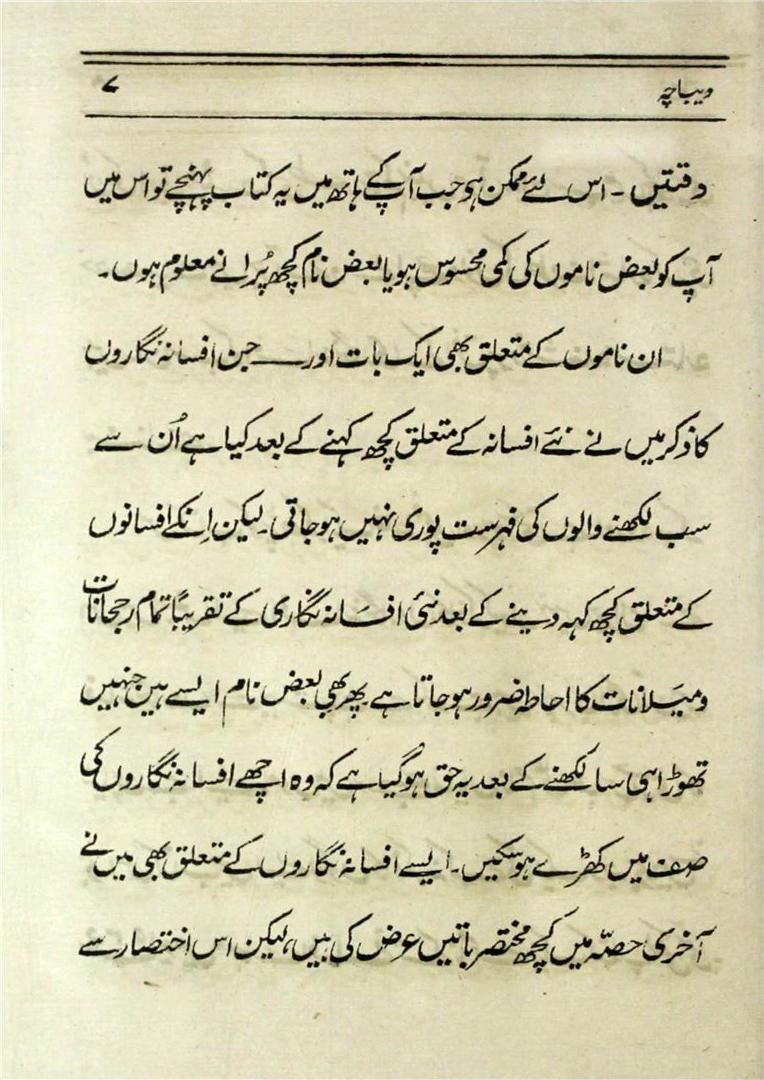 دیباچہ ۷
دقتیں ۔ اس لئے ممکن ہو جب آپ کے ہاتھ میں یہ کتاب پہنچے تو اس میں
آپ کو بعض ناموں کی کمی محسوس ہو یا بعض نام کچھ پُرانے معلوم ہوں۔
ان ناموں کے متعلق بھی ایک بات اور ــــ جن افسانہ نگاروں
کا ذکر میں نے نئے افسانہ کے متعلق کچھ کہنے کے بعد کیا ہے اُن سے
سب لکھنے والوں کی فہرست پوری نہیں ہو جاتی۔ لیکن اِنکے افسانوں
کے متعلق کچھ کہہ دینے کے بعد نئی افسَانہ نگاری کے تقریباً تمام رجحانات
و میَلانات کا احاطہ ضرور ہو جاتا ہے پھر بھی بعض نام ایسے ہیں جنہیں
تھوڑا ہی سا لکھنے کے بعد یہ حق ہو گیا ہے کہ وہ اچھے افسانہ نگاروں کی
صف میں کھڑے ہو سکیں۔ ایسے افسانہ نگاروں کے متعلق بھی میں نے
آخری حصّہ میں کچھ مختصر باتیں عرض کی ہیں، لیکن اس اختصار سے